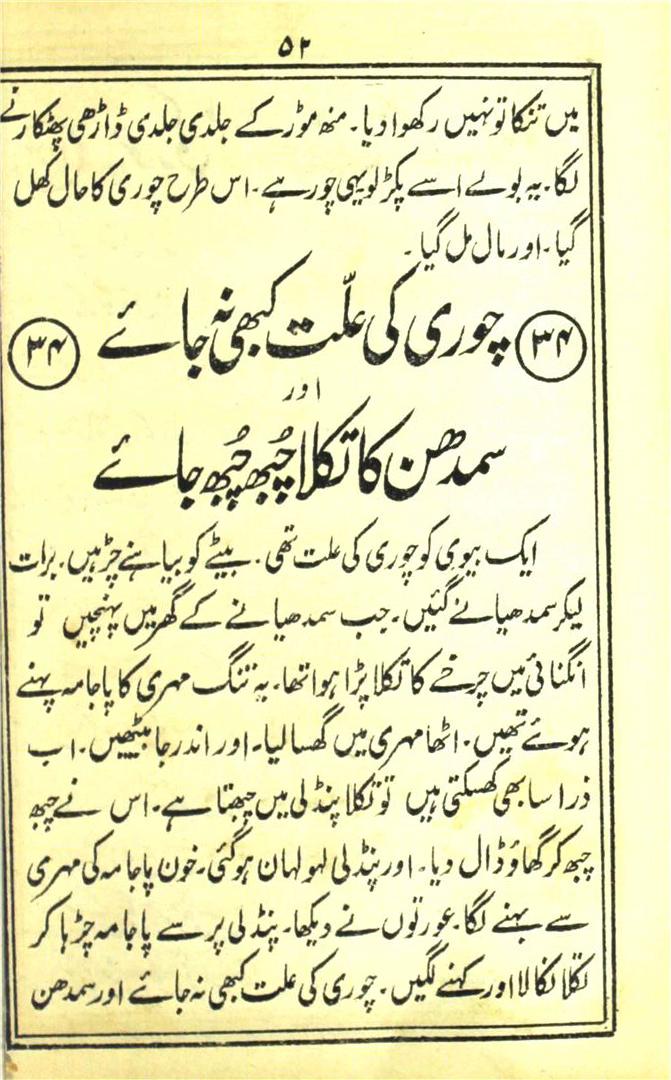 ۵۲
میں تنکا تو نہیں رکھوا دیا۔ منھ موڑ کے جلدی جلدی ڈاڑھی پھٹکارنے
لگا۔ یہ بولے اسے پکڑ لو یہی چور ہے۔ اس طرح چوری کا حال کھل
گیا۔ اور مال مل گیا۔
۳۴ چوری کی علّت کبھی نہ جائے ۳۴
اور
سمدھن کا تکلا چُبھ چُبھ جائے
ایک بیوی کو چوری کی علت تھی۔ بیٹے کو بیاہنے چڑہیں۔ برات
لیکر سمدھیانے گئیں۔ جب سمدھیانے کے گھر میں پہنچیں تو
انگنائی میں چرخے کا تکلا پڑا ہوا تھا۔ یہ تنگ مہری کا پاجامہ پہنے
ہوئے تھیں۔ اٹھا مہری میں گھسا لیا۔ اور اندر جا بیٹھیں۔ اب
ذرا سا بھی کھسکتی ہیں تو تکلا پنڈلی میں چبھتا ہے۔ اس نے چبھ
چبھ کر گھاؤ ڈال دیا۔ اور پنڈلی لہولہان ہوگئی۔ خون پاجامہ کی مہری
سے بہنے لگا۔ عورتوں نے دیکھا۔ پنڈلی پر سے پاجامہ چڑہا کر
تکلا نکالا اور کہنے لگیں۔ چوری کی علت کبھی نہ جائے اور سمدھن